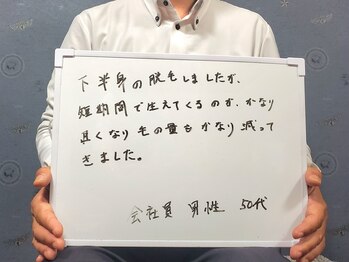 下半身の脱毛しましたが、
短期間で生えてくるのが、かなり
長くなり毛の量もかなり減って
きました。
会社員 男性 50代